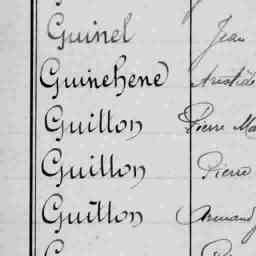 Guinel Jean
Guinehene Aristide
Guitton Pierre Ma
Guitton Pierre
Guitton Armand